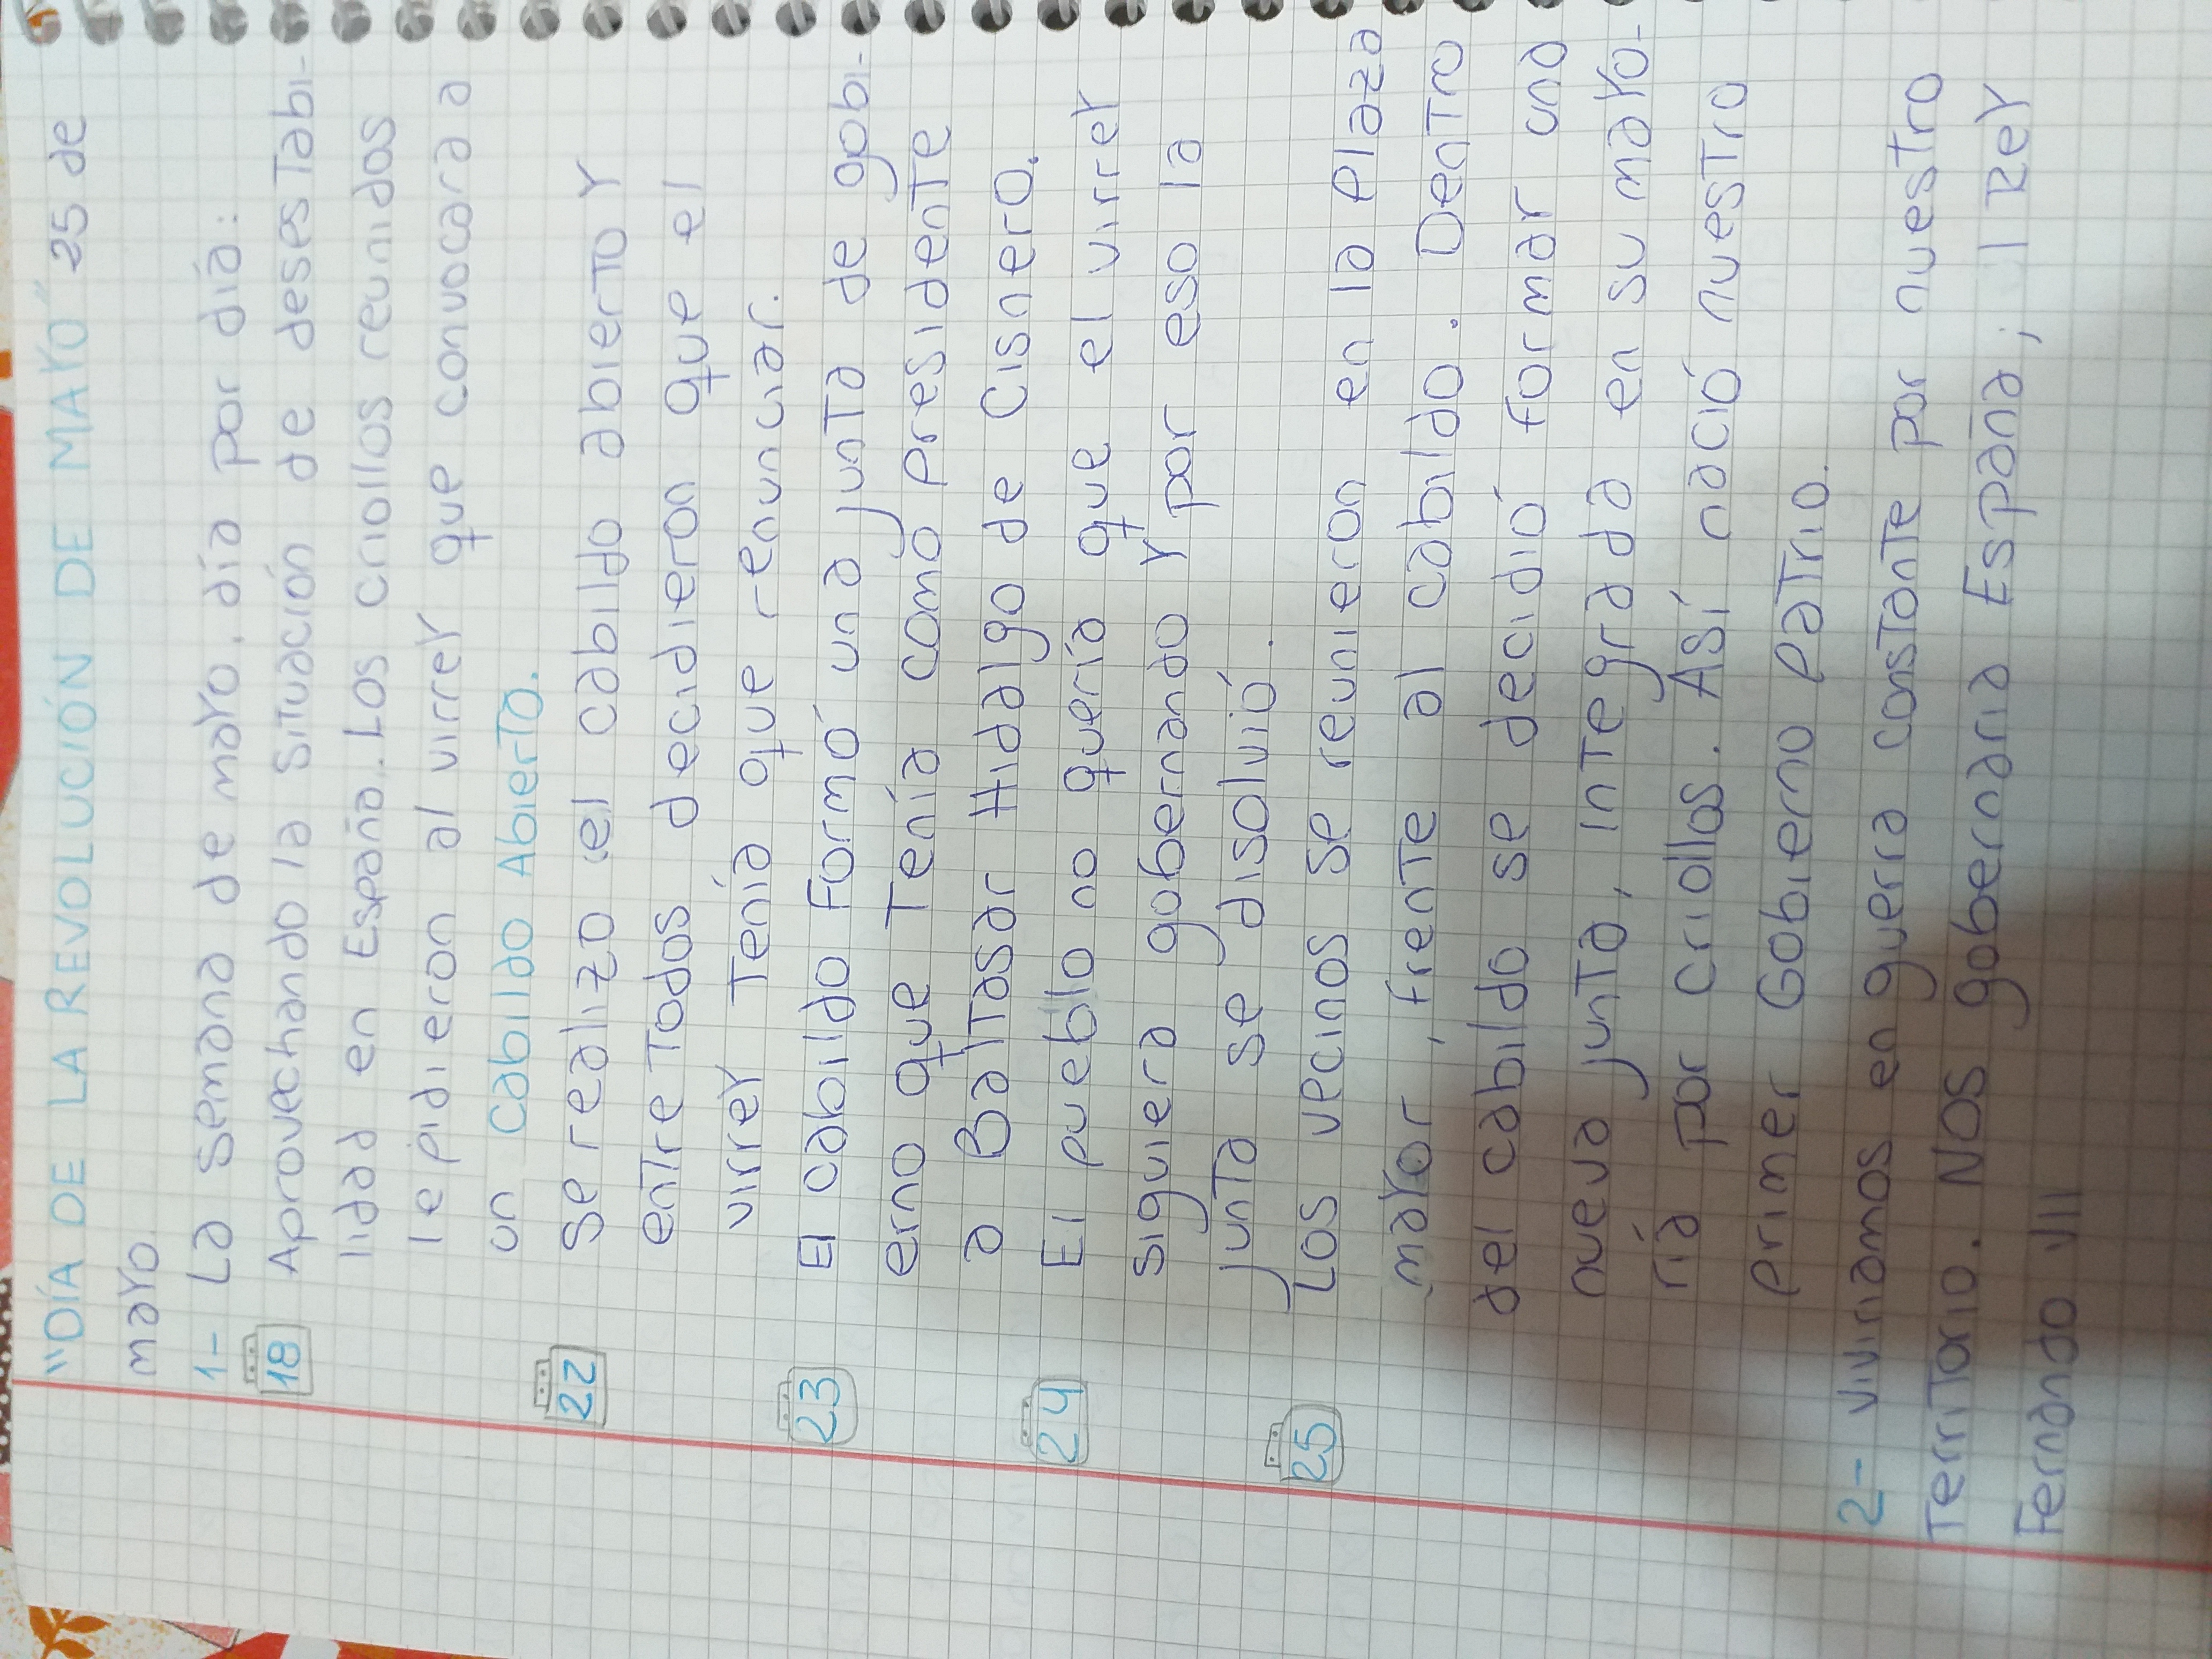 "DÍA DE LA REVOLUCIÓN DE MAYO" 25 de
mayo.
1- La semana de mayo, día por día:
18 Aprovechando la situación de desestabi-
lidad en España. Los criollos reunidos
le pidieron al virrey que convocara a
un Cabildo Abierto.
22 Se realizo el cabildo abierto y
entre todos decidieron que el
virrey tenía que renunciar.
23 El cabildo formó una junta de gobi-
erno que tenía como presidente
a Baltasar Hidalgo de Cisnero.
24 El pueblo no quería que el virrey
siguiera gobernando y por eso la
junta se disolvió.
25 Los vecinos se reunieron en la plaza
mayor, frente al cabildo. Dentro
del cabildo se decidió formar una
nueva junta, integrada en su mayo-
ría por criollos. Así nació nuestro
primer Gobierno Patrio.
2- viviriamos en guerra constante por nuestro
territorio. Nos gobernaria España; l Rey
Fernando VII